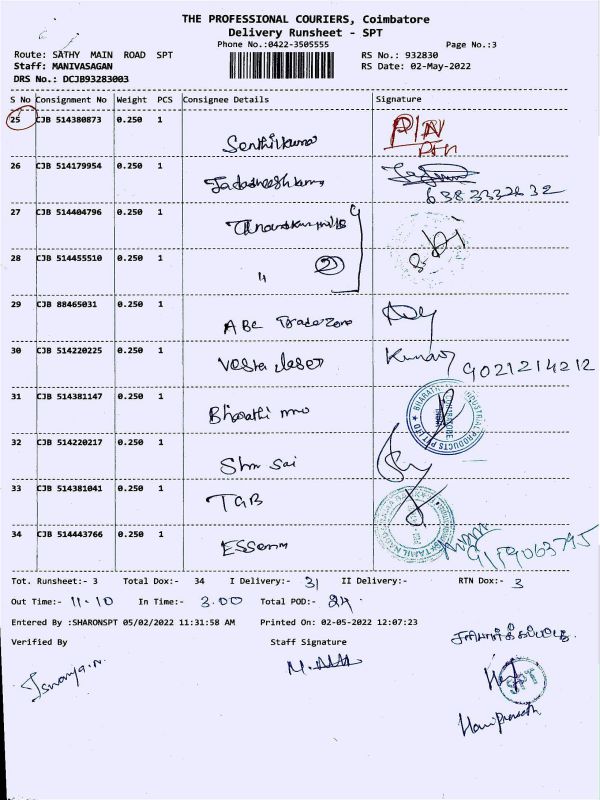 THE PROFESSIONAL COURIERS, Coimbatore
Delivery Runsheet - SPT
Phone No.:0422-3505555
Page No.:3
Route: SATHY MAIN ROAD SPT
RS No.: 932830
Staff: MANIVASAGAN
RS Date: 02-May-2022
DRS No.: DCJB93283003
S No Consignment No Weight PCS Consignee Details Signature
25 CJB 514380873 0.250 1 Senthilkumar
26 CJB 514179954 0.250 1 Jagadheeshkumar
27 CJB 514404796 0.250 1
28 CJB 514455510 0.250 1 " 2
29 CJB 88465031 0.250 1 ABC Tradezone
30 CJB 514220225 0.250 1 Vesta laser Kumar 9021214212
31 CJB 514381147 0.250 1 Bharathi
32 CJB 514220217 0.250 1 Shri Sai
33 CJB 514381041 0.250 1 TGB
34 CJB 514443766 0.250 1 ESSemm
Tot. Runsheet:- 3 Total Dox:- 34 I Delivery:- 31 II Delivery:- RTN Dox:- 3
Out Time:- 11.10 In Time:- 3.00 Total POD:- 24
Entered By :SHARONSPT 05/02/2022 11:31:58 AM Printed On: 02-05-2022 12:07:23
Verified By Staff Signature
சரிபார்க்கப்பட்டது
Iswarya.N.
SPT
Hariprasath